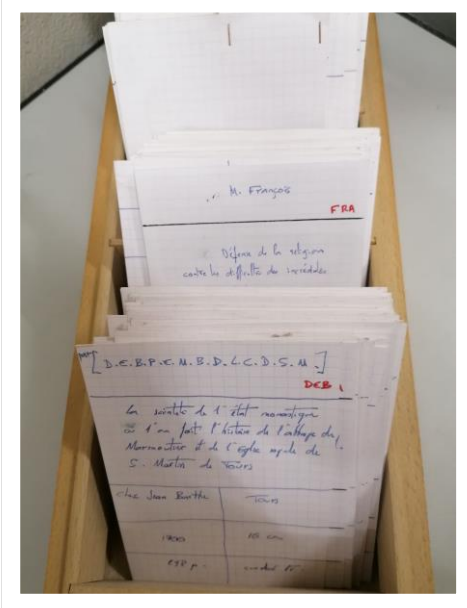 M. François
FRA
Défense de la religion
contre les difficultés des incrédules
[D.E.B.P.E.M.B.D.L.C.D.S.M.]
DEB
la sainteté de l'état monastique
où l'on fait l'histoire de l'abbaye de
Marmoutier et de l'église royale de
S. Martin de Tours
chez Jean Barthe
Tours
1700
cm
p.